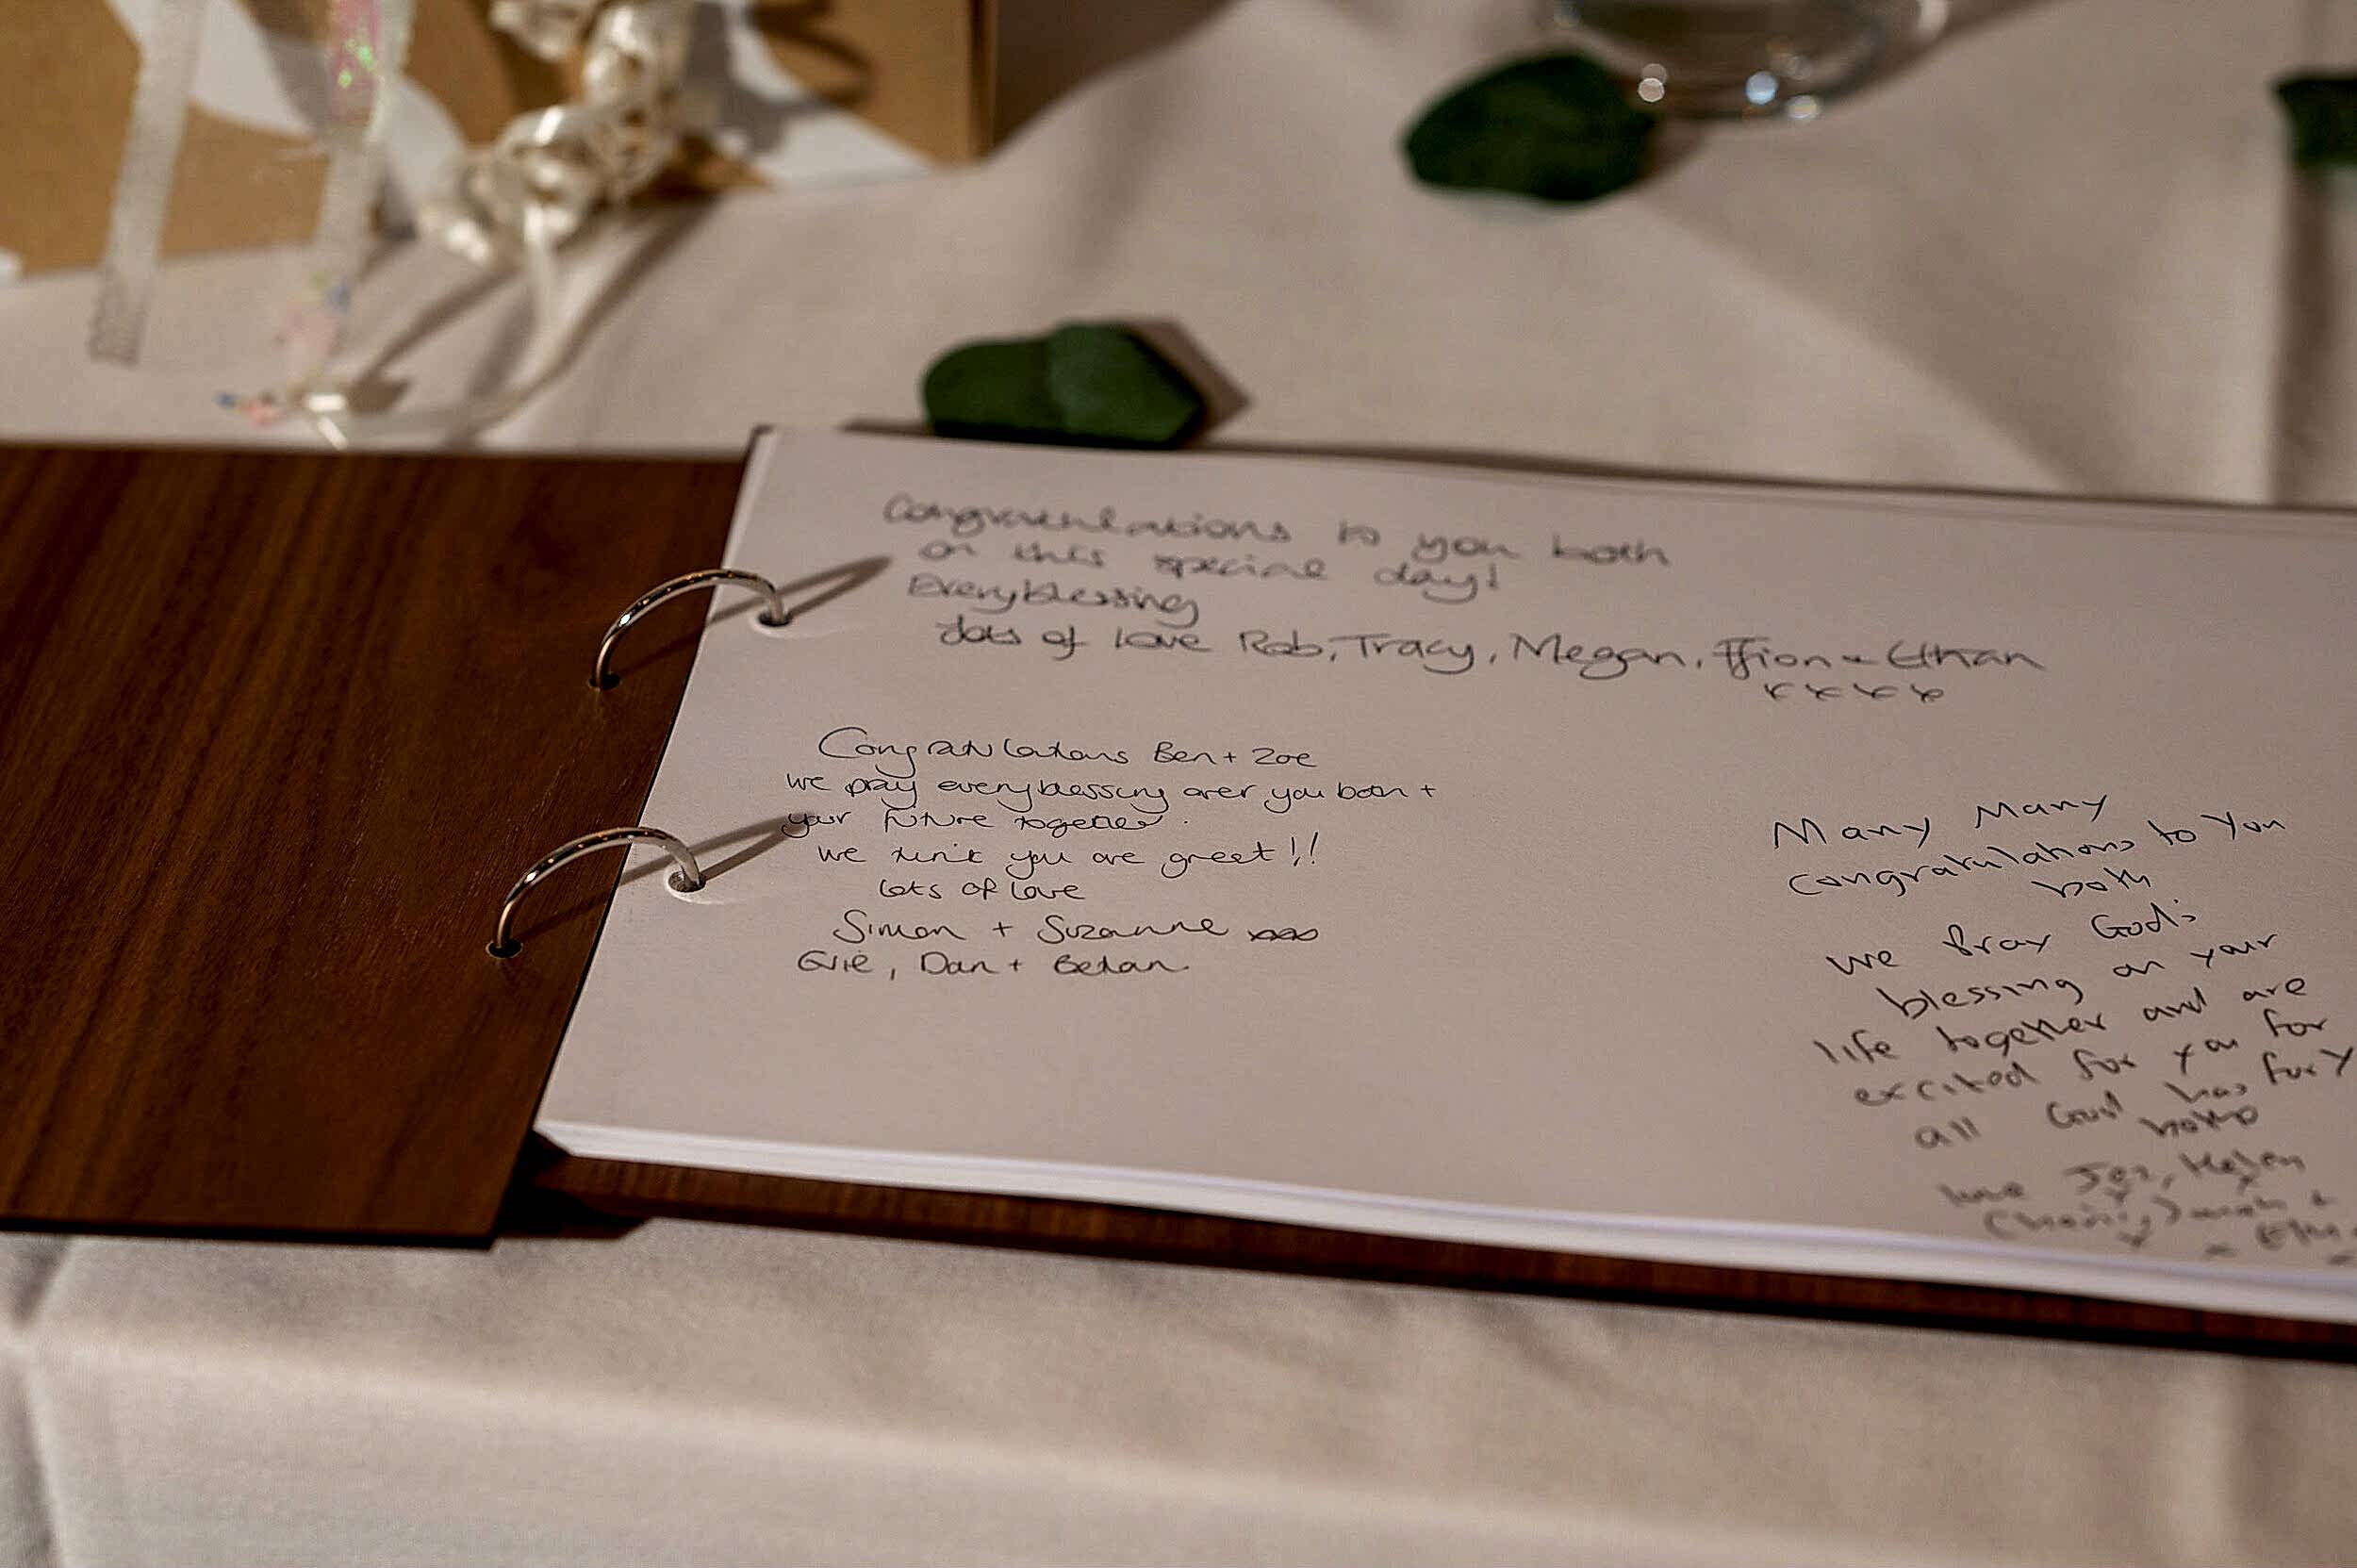 Congratulations to you both
on this special day!
Every blessing
Lots of love Rob, Tracy, Megan, Ffion + Ethan
xxxx
Congratulations Ben + Zoe
we pray every blessing over you both +
your future together.
we think you are great!!
lots of love
Simon + Suzanne xxx
Evie, Dan +
Many Many
congratulations to you
both
we Pray God's
blessing on your
life together and are
excited for you for
all God has for y
both
love Helen